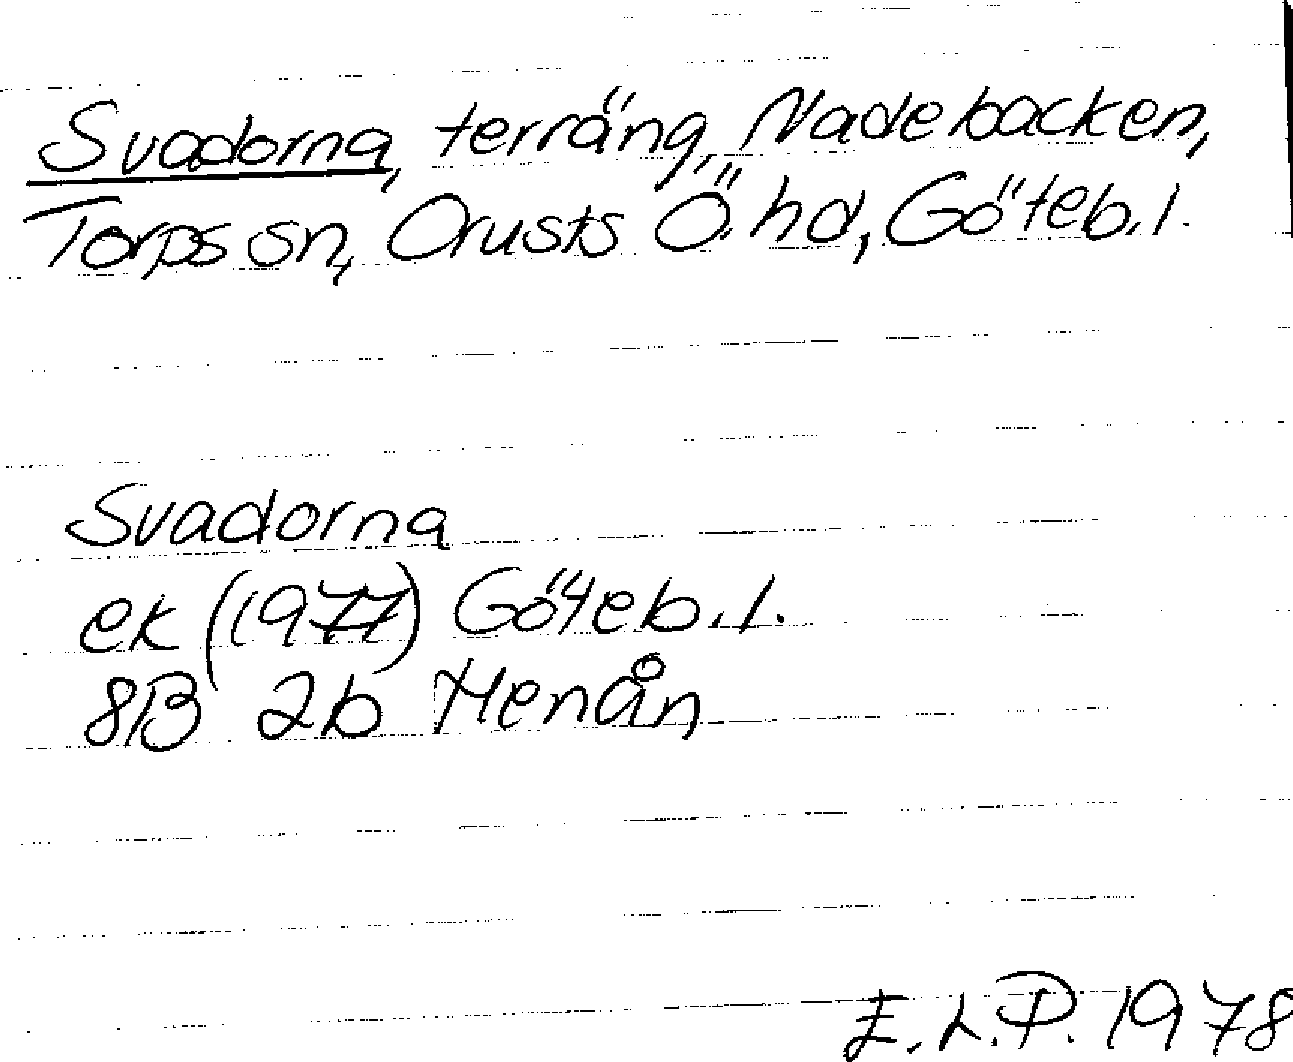 Svadorna, terräng, Nadebacken,
Torps sn, Orusts Ö. hd, Göteb. l.
Svadorna
ek (1977) Göteb. l.
8B 2b Henån
E.L.P. 1978